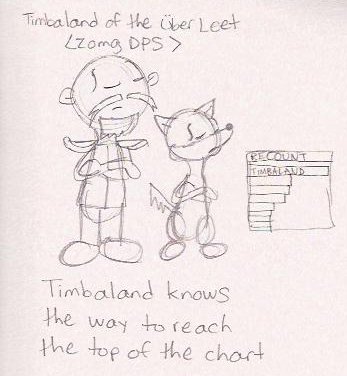 Timbaland of the Über Leet
<Zomg DPS>
RECOUNT
TIMBALAND
Timbaland knows
the way to reach
the top of the chart